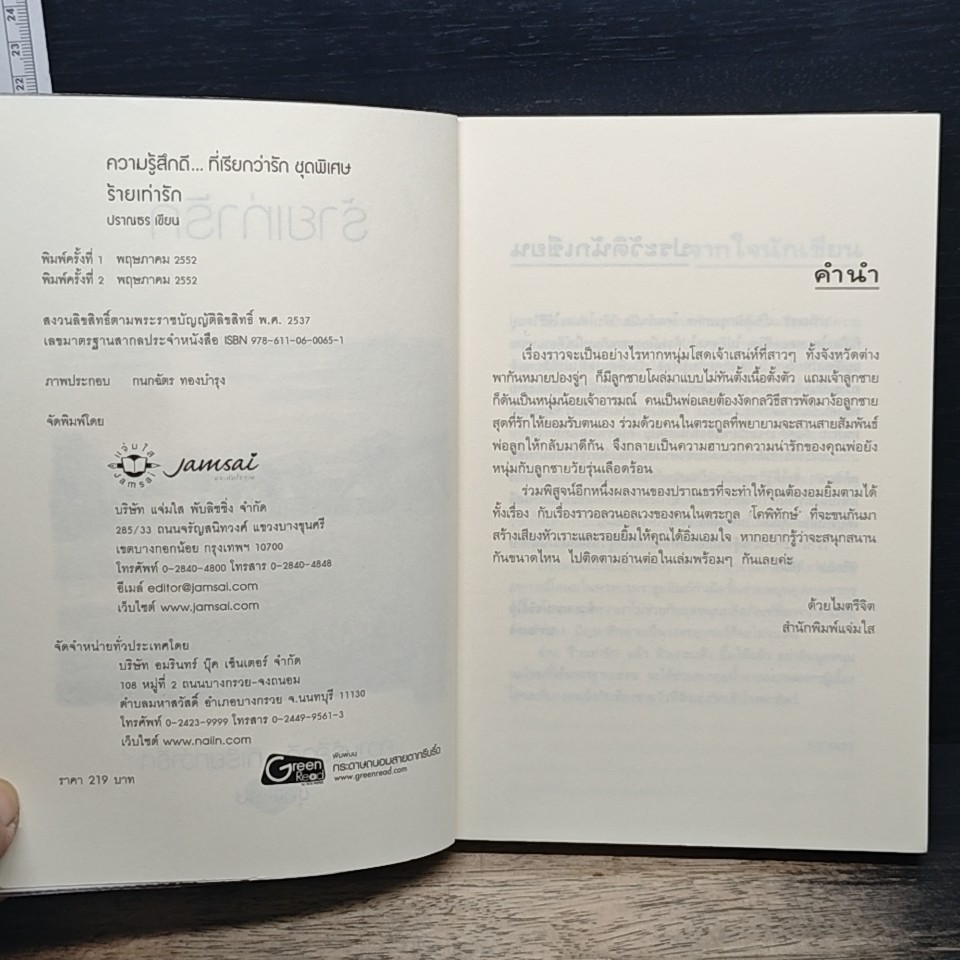 24
23
22
ความรู้สึกดี... ที่เรียกว่ารัก ชุดพิเศษ
ร้ายเท่ารัก
ปราณธร เขียน
พิมพ์ครั้งที่ 1 พฤษภาคม 2552
พิมพ์ครั้งที่ 2 พฤษภาคม 2552
สงวนลิขสิทธิ์ตามพระราชบัญญัติลิขสิทธิ์ พ.ศ. 2537
เลขมาตรฐานสากลประจำหนังสือ ISBN 978-611-06-0065-1
ภาพประกอบ กนกฉัตร ทองบำรุง
จัดพิมพ์โดย
แจ่มใส
Jamsai
Jamsai
บริษัท แจ่มใส พับลิชชิ่ง จำกัด
285/33 ถนนจรัญสนิทวงศ์ แขวงบางขุนศรี
เขตบางกอกน้อย กรุงเทพฯ 10700
โทรศัพท์ 0-2840-4800 โทรสาร 0-2840-4848
อีเมล์ editor@jamsai.com
เว็บไซต์ www.jamsai.com
จัดจำหน่ายทั่วประเทศโดย
บริษัท อมรินทร์ บุ๊ค เซ็นเตอร์ จำกัด
108 หมู่ที่ 2 ถนนบางกรวย-จงถนอม
ตำบลมหาสวัสดิ์ อำเภอบางกรวย จ.นนทบุรี 11130
โทรศัพท์ 0-2423-9999 โทรสาร 0-2449-9561-3
เว็บไซต์ www.naiin.com
ราคา 219 บาท
Green Read
พิมพ์บน
กระดาษถนอมสายตากรีนรี้ด
www.greenread.com
คำนำ
เรื่องราวจะเป็นอย่างไรหากหนุ่มโสดเจ้าเสน่ห์ที่สาวๆ ทั้งจังหวัดต่าง
พากันหมายปองจู่ๆ ก็มีลูกชายโผล่มาแบบไม่ทันตั้งเนื้อตั้งตัว แถมเจ้าลูกชาย
ก็ดันเป็นหนุ่มน้อยเจ้าอารมณ์ คนเป็นพ่อเลยต้องงัดกลวิธีสารพัดมาง้อลูกชาย
สุดที่รักให้ยอมรับตนเอง ร่วมด้วยคนในตระกูลที่พยายามจะสานสายสัมพันธ์
พ่อลูกให้กลับมาดีกัน จึงกลายเป็นความฮาบวกความน่ารักของคุณพ่อยัง
หนุ่มกับลูกชายวัยรุ่นเลือดร้อน
ร่วมพิสูจน์อีกหนึ่งผลงานของปราณธรที่จะทำให้คุณต้องอมยิ้มตามได้
ทั้งเรื่อง กับเรื่องราวอลวนอลเวงของคนในตระกูล 'โคพิทักษ์' ที่จะขนกันมา
สร้างเสียงหัวเราะและรอยยิ้มให้คุณได้อิ่มเอมใจ หากอยากรู้ว่าจะสนุกสนาน
กันขนาดไหน ไปติดตามอ่านต่อในเล่มพร้อมๆ กันเลยค่ะ
ด้วยไมตรีจิต
สำนักพิมพ์แจ่มใส